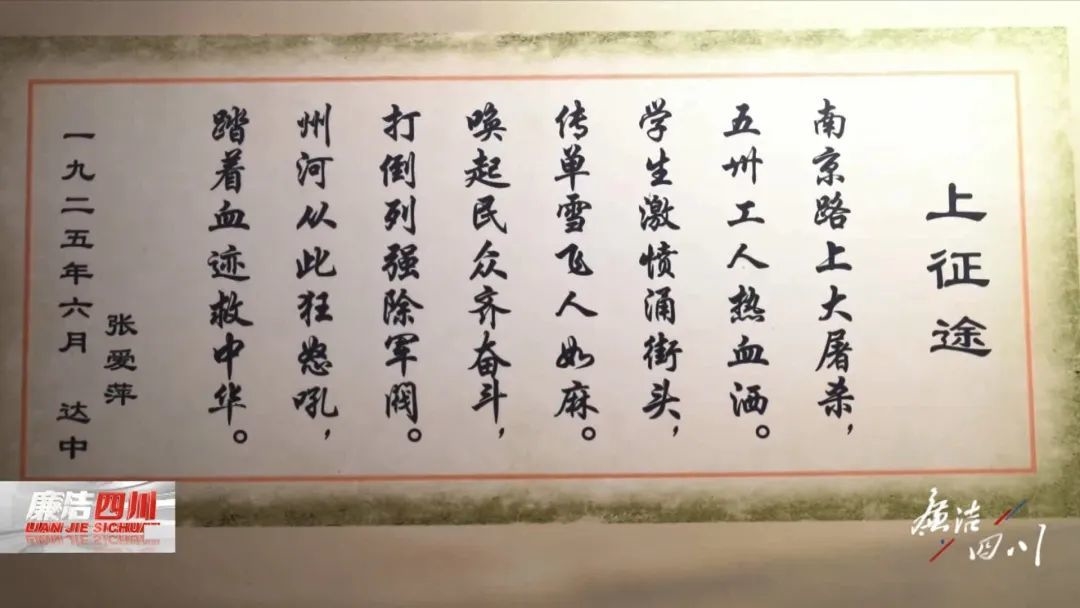 上征途
南京路上大屠杀，
五卅工人热血洒。
学生激愤涌街头，
传单雪飞人如麻。
唤起民众齐奋斗，
打倒列强除军阀。
州河从此狂怒吼，
踏着血迹救中华。
张爱萍
一九二五年六月 达中
廉洁四川
LIAN JIE SICHUAN
廉洁
四川